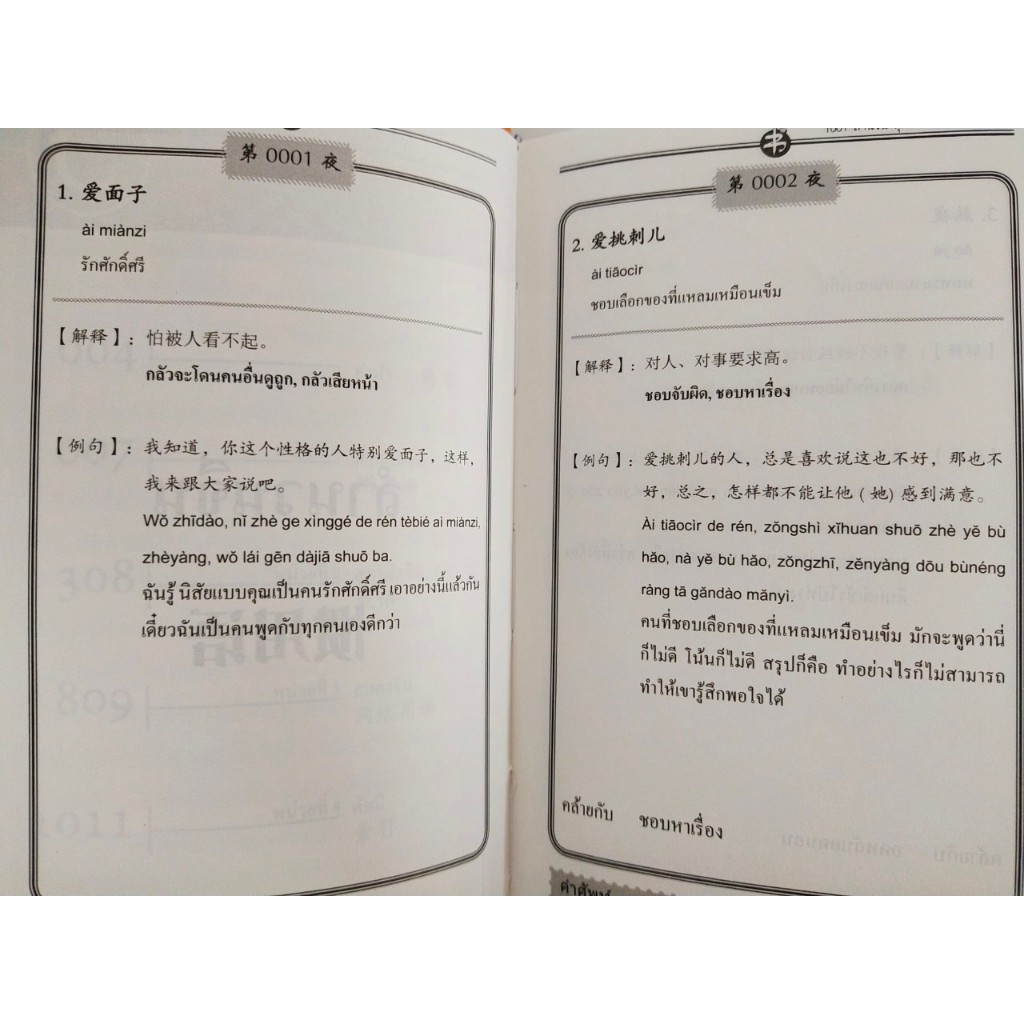 第 0001 夜
1. 爱面子
ài miànzi
รักศักดิ์ศรี
【解释】：怕被人看不起。
กลัวจะโดนคนอื่นดูถูก, กลัวเสียหน้า
【例句】：我知道，你这个性格的人特别爱面子，这样，
我来跟大家说吧。
Wǒ zhīdào, nǐ zhè ge xìnggé de rén tèbié aì miánzi,
zhèyàng, wǒ lái gēn dàjiā shuō ba.
ฉันรู้ นิสัยแบบคุณเป็นคนรักศักดิ์ศรี เอาอย่างนี้แล้วกัน
เดี๋ยวฉันเป็นคนพูดกับทุกคนเองดีกว่า
书
第 0002 夜
2. 爱挑刺儿
ài tiāocìr
ชอบเลือกของที่แหลมเหมือนเข็ม
【解释】：对人、对事要求高。
ชอบจับผิด, ชอบหาเรื่อง
【例句】：爱挑刺儿的人，总是喜欢说这也不好，那也不
好，总之，怎样都不能让他 ( 她) 感到满意。
Ài tiāocìr de rén, zǒngshì xǐhuan shuō zhè yě bù
hǎo, nà yě bù hǎo, zǒngzhī, zěnyàng dōu bùnéng
ràng tā gǎndào mǎnyì.
คนที่ชอบเลือกของที่แหลมเหมือนเข็ม มักจะพูดว่านี่
ก็ไม่ดี โน้นก็ไม่ดี สรุปก็คือ ทำอย่างไรก็ไม่สามารถ
ทำให้เขารู้สึกพอใจได้
คล้ายกับ ชอบหาเรื่อง
คำศัพท์